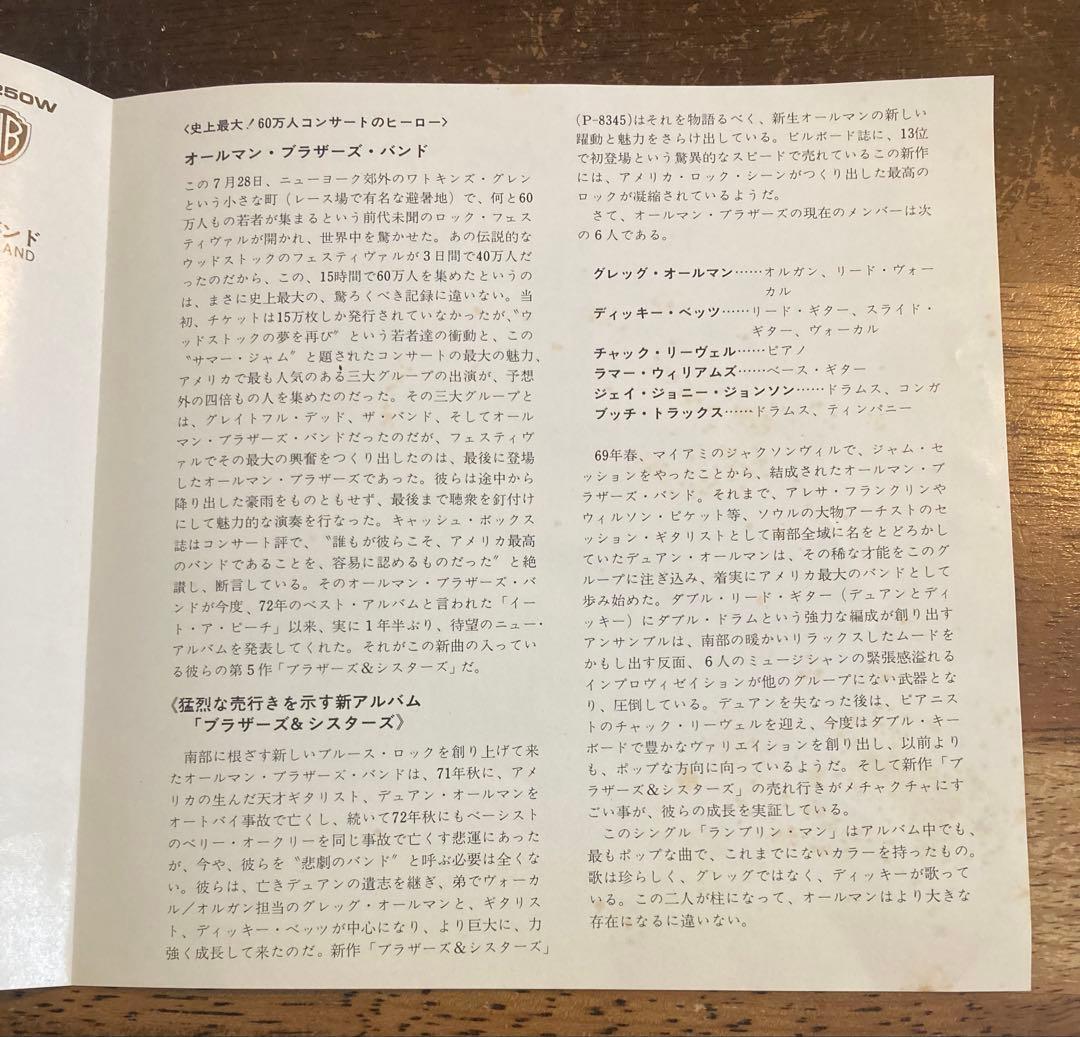 250W
ンド
AND
〈史上最大！60万人コンサートのヒーロー〉
オールマン・ブラザーズ・バンド
この７月28日、ニューヨーク郊外のワトキンズ・グレン
という小さな町（レース場で有名な避暑地）で、何と60
万人もの若者が集まるという前代未聞のロック・フェス
ティヴァルが開かれ、世界中を驚かせた。あの伝説的な
ウッドストックのフェスティヴァルが３日間で40万人だ
ったのだから、この、15時間で60万人を集めたというの
は、まさに史上最大の、驚ろくべき記録に違いない。当
初、チケットは15万枚しか発行されていなかったが、〝ウ
ッドストックの夢を再び〟という若者達の衝動と、この
〝サマー・ジャム〟と題されたコンサートの最大の魅力、
アメリカで最も人気のある三大グループの出演が、予想
外の四倍もの人を集めたのだった。その三大グループと
は、グレイトフル・デッド、ザ・バンド、そしてオール
マン・ブラザーズ・バンドだったのだが、フェスティヴ
ァルでその最大の興奮をつくり出したのは、最後に登場
したオールマン・ブラザーズであった。彼らは途中から
降り出した豪雨をものともせず、最後まで聴衆を釘付け
にして魅力的な演奏を行なった。キャッシュ・ボックス
誌はコンサート評で、〝誰もが彼らこそ、アメリカ最高
のバンドであることを、容易に認めるものだった〟と絶
讃し、断言している。そのオールマン・ブラザーズ・バ
ンドが今度、72年のベスト・アルバムと言われた「イー
ト・ア・ピーチ」以来、実に１年半ぶり、待望のニュー・
アルバムを発表してくれた。それがこの新曲の入ってい
る彼らの第５作「ブラザーズ&シスターズ」だ。
《猛烈な売行きを示す新アルバム
「ブラザーズ&シスターズ》
南部に根ざす新しいブルース・ロックを創り上げて来
たオールマン・ブラザーズ・バンドは、71年秋に、アメ
リカの生んだ天才ギタリスト、デュアン・オールマンを
オートバイ事故で亡くし、続いて72年秋にもベーシスト
のベリー・オークリーを同じ事故で亡くす悲運にあった
が、今や、彼らを〝悲劇のバンド〟と呼ぶ必要は全くな
い。彼らは、亡きデュアンの遺志を継ぎ、弟でヴォーカ
ル／オルガン担当のグレッグ・オールマンと、ギタリス
ト、ディッキー・ベッツが中心になり、より巨大に、力
強く成長して来たのだ。新作「ブラザーズ&シスターズ」
(P-8345)はそれを物語るべく、新生オールマンの新しい
躍動と魅力をさらけ出している。ビルボード誌に、13位
で初登場という驚異的なスピードで売れているこの新作
には、アメリカ・ロック・シーンがつくり出した最高の
ロックが凝縮されているようだ。
さて、オールマン・ブラザーズの現在のメンバーは次
の６人である。
グレッグ・オールマン……オルガン、リード・ヴォー
カル
ディッキー・ベッツ……リード・ギター、スライド・
ギター、ヴォーカル
チャック・リーヴェル……ピアノ
ラマー・ウィリアムズ……ベース・ギター
ジェイ・ジョニー・ジョンソン……ドラムス、コンガ
ブッチ・トラックス……ドラムス、ティンパニー
69年春、マイアミのジャクソンヴィルで、ジャム・セ
ッションをやったことから、結成されたオールマン・ブ
ラザーズ・バンド。それまで、アレサ・フランクリンや
ウィルソン・ピケット等、ソウルの大物アーチストのセ
ッション・ギタリストとして南部全域に名をとどろかし
ていたデュアン・オールマンは、その稀な才能をこのグ
ループに注ぎ込み、着実にアメリカ最大のバンドとして
歩み始めた。ダブル・リード・ギター（デュアンとディ
ッキー）にダブル・ドラムという強力な編成が創り出す
アンサンブルは、南部の暖かいリラックスしたムードを
かもし出す反面、６人のミュージシャンの緊張感溢れる
インプロヴィゼイションが他のグループにない武器とな
り、圧倒している。デュアンを失なった後は、ピアニス
トのチャック・リーヴェルを迎え、今度はダブル・キー
ボードで豊かなヴァリエイションを創り出し、以前より
も、ポップな方向に向っているようだ。そして新作「ブ
ラザーズ&シスターズ」の売れ行きがメチャクチャにす
ごい事が、彼らの成長を実証している。
このシングル「ランブリン・マン」はアルバム中でも、
最もポップな曲で、これまでにないカラーを持ったもの。
歌は珍らしく、グレッグではなく、ディッキーが歌って
いる。この二人が柱になって、オールマンはより大きな
存在になるに違いない。